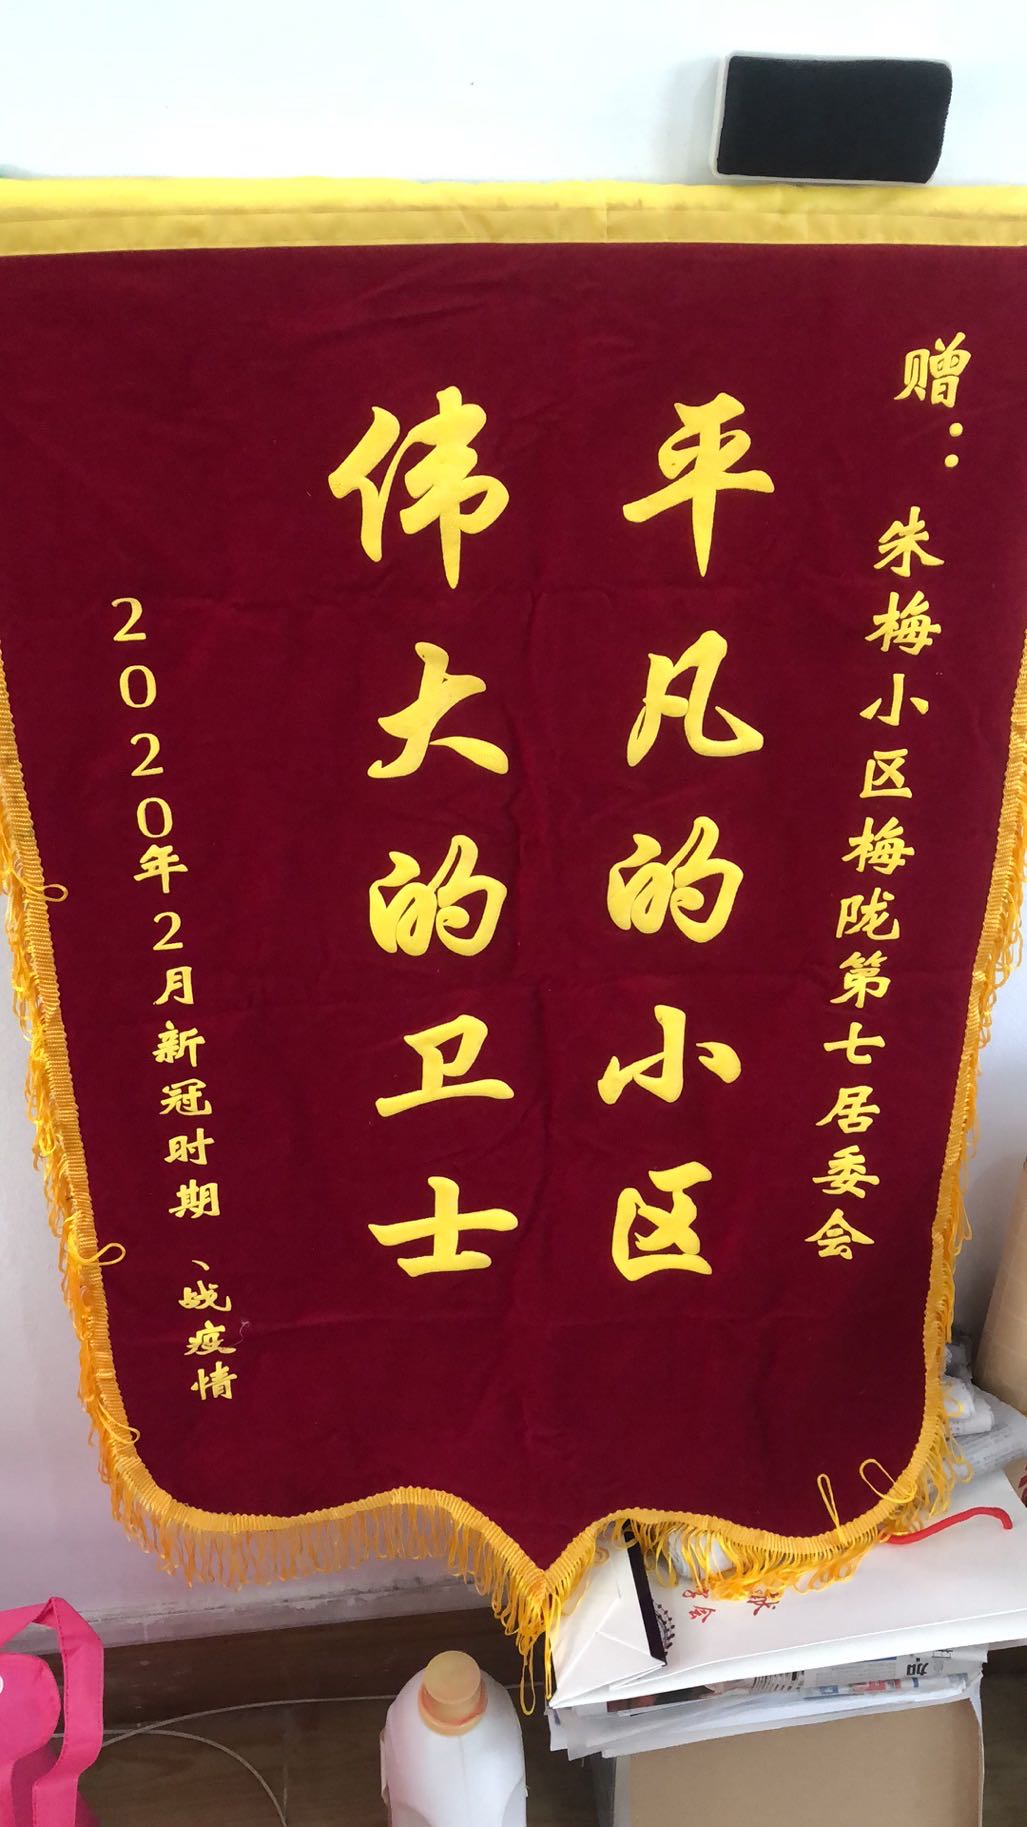 赠：朱梅小区梅陇第七居委会
平凡的小区
伟大的卫士
2020年2月新冠时期、战疫情
加